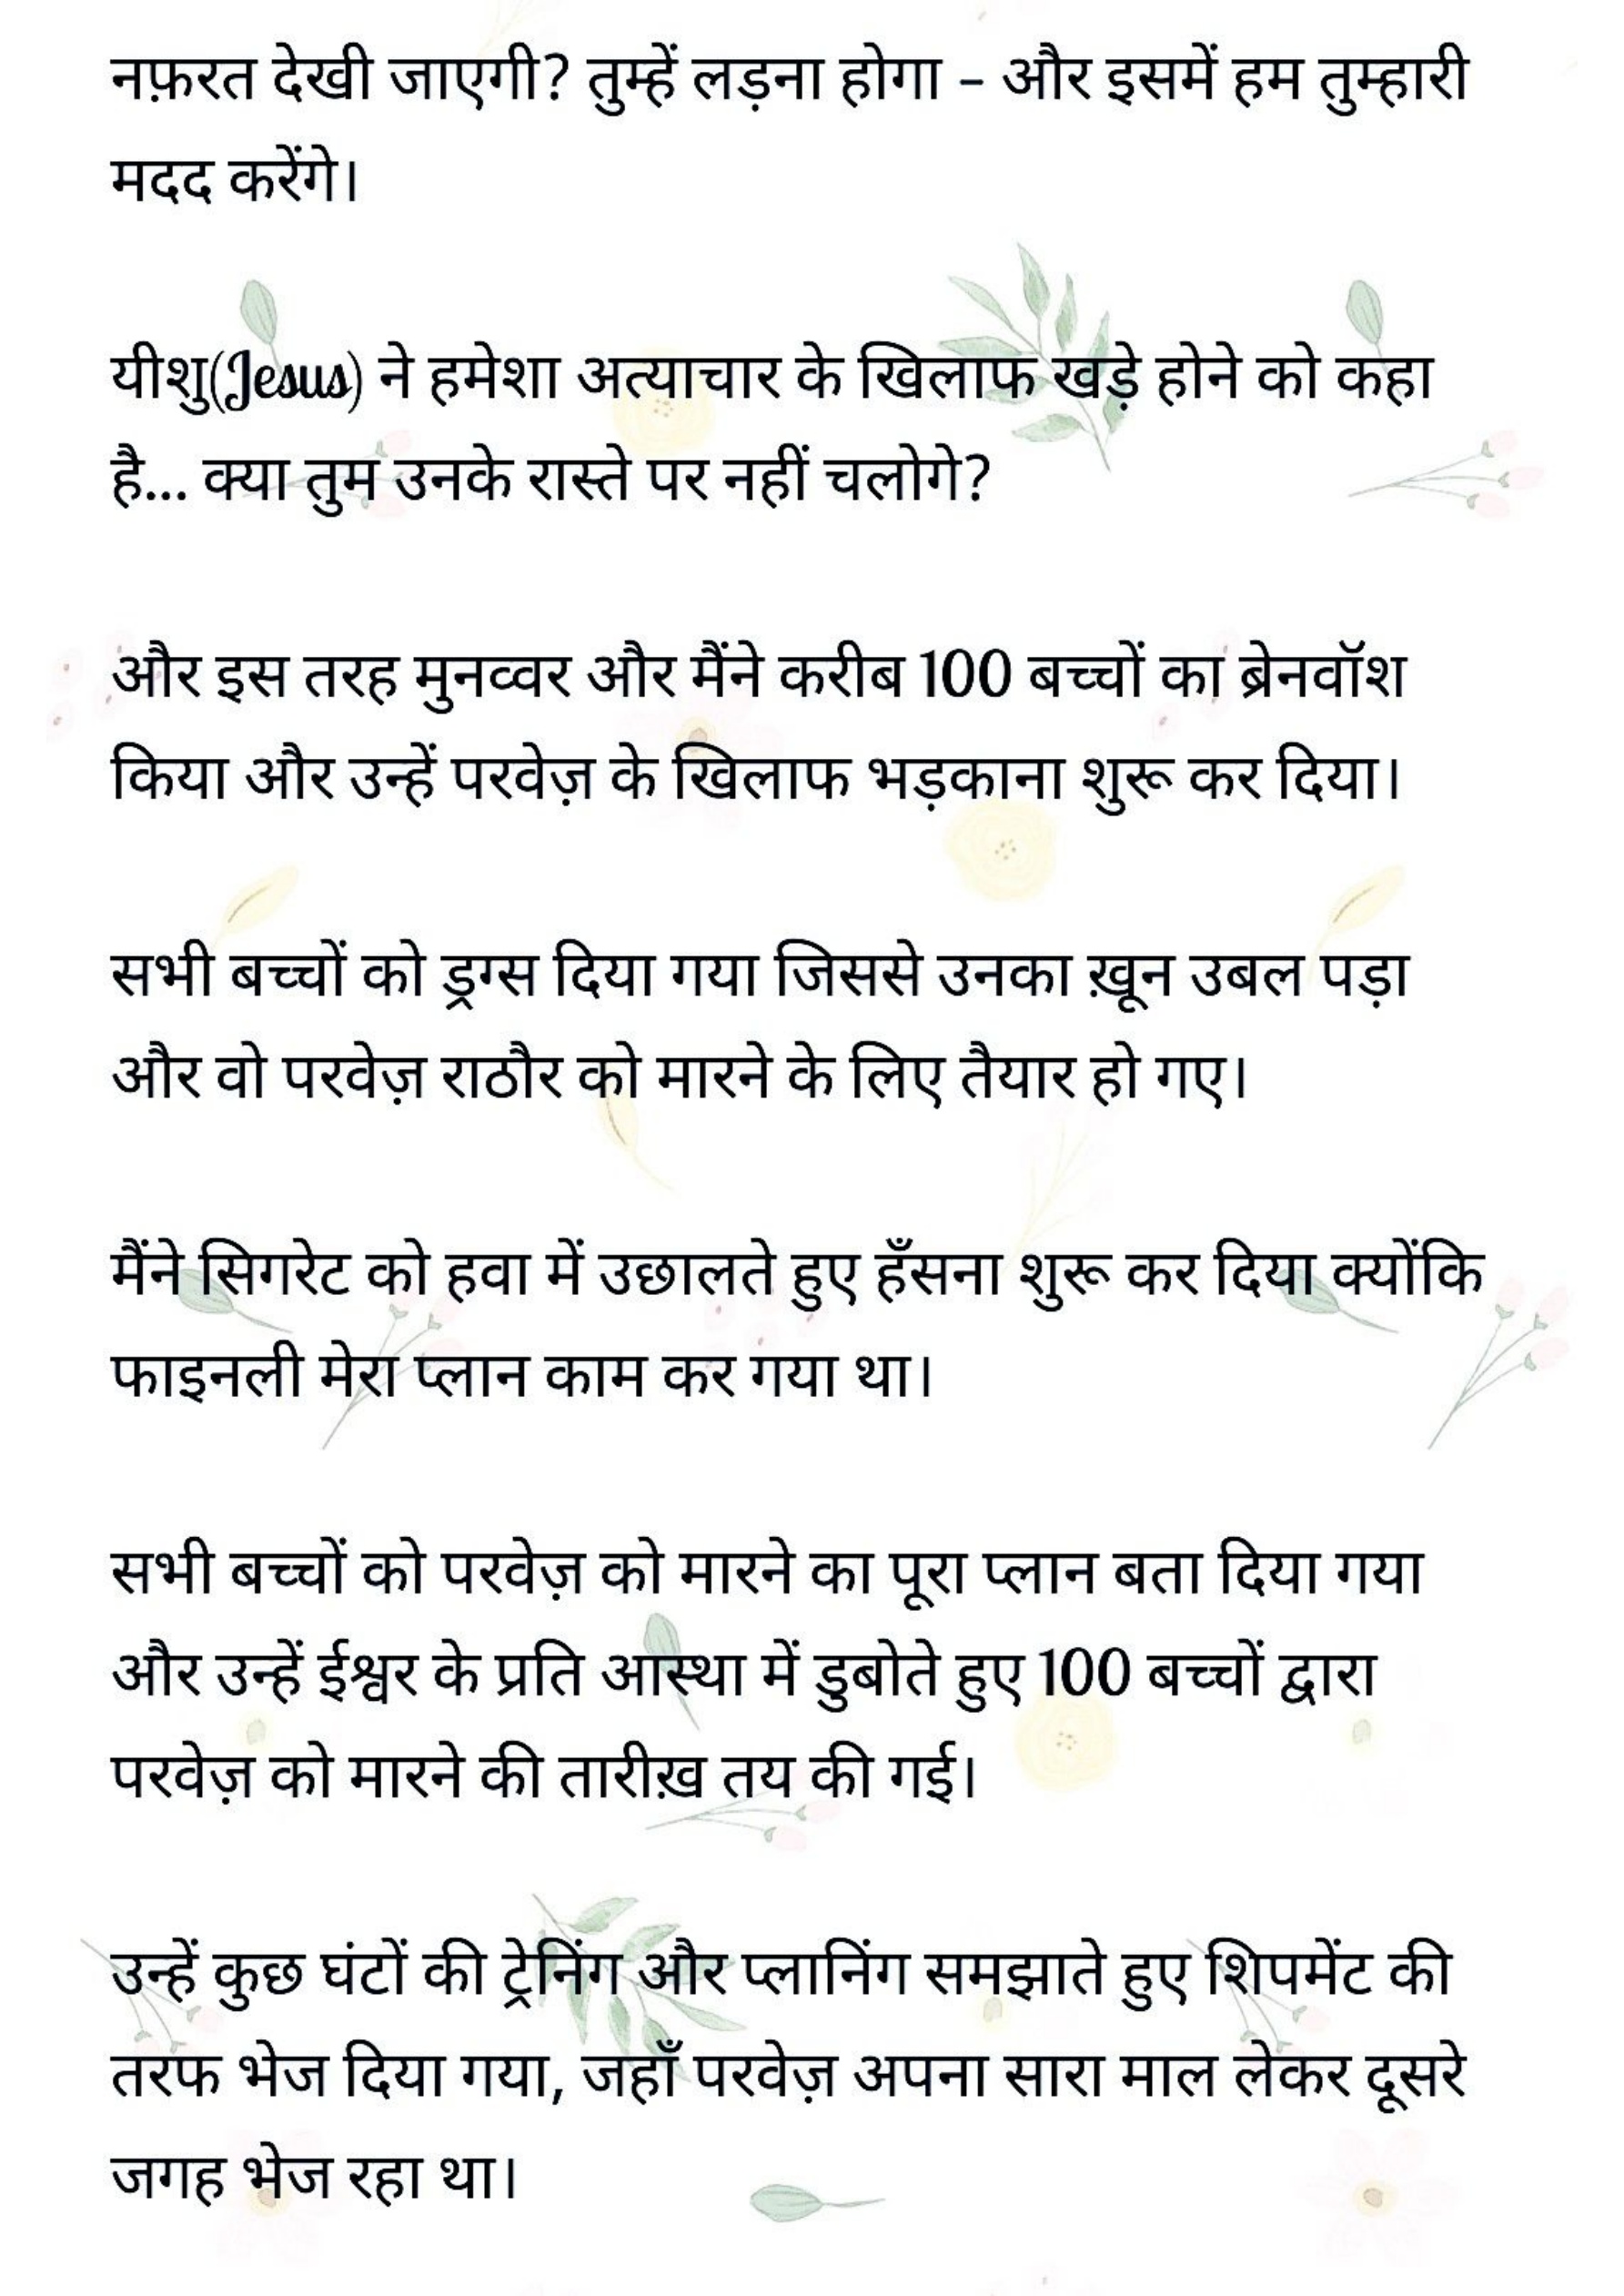 नफ़रत देखी जाएगी? तुम्हें लड़ना होगा – और इसमें हम तुम्हारी
मदद करेंगे।
यीशु(Jesus) ने हमेशा अत्याचार के खिलाफ खड़े होने को कहा
है... क्या तुम उनके रास्ते पर नहीं चलोगे?
और इस तरह मुनव्वर और मैंने करीब 100 बच्चों का ब्रेनवॉश
किया और उन्हें परवेज़ के खिलाफ भड़काना शुरू कर दिया।
सभी बच्चों को ड्रग्स दिया गया जिससे उनका ख़ून उबल पड़ा
और वो परवेज़ राठौर को मारने के लिए तैयार हो गए।
मैंने सिगरेट को हवा में उछालते हुए हँसना शुरू कर दिया क्योंकि
फाइनली मेरा प्लान काम कर गया था।
सभी बच्चों को परवेज़ को मारने का पूरा प्लान बता दिया गया
और उन्हें ईश्वर के प्रति आस्था में डुबोते हुए 100 बच्चों द्वारा
परवेज़ को मारने की तारीख़ तय की गई।
उन्हें कुछ घंटों की ट्रेनिंग और प्लानिंग समझाते हुए शिपमेंट की
तरफ भेज दिया गया, जहाँ परवेज़ अपना सारा माल लेकर दूसरे
जगह भेज रहा था।